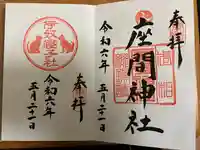 奉拝
座間神社
令和六年
五月二十一日
伊奴寝子社
奉拝
令和六年
五月二十一日